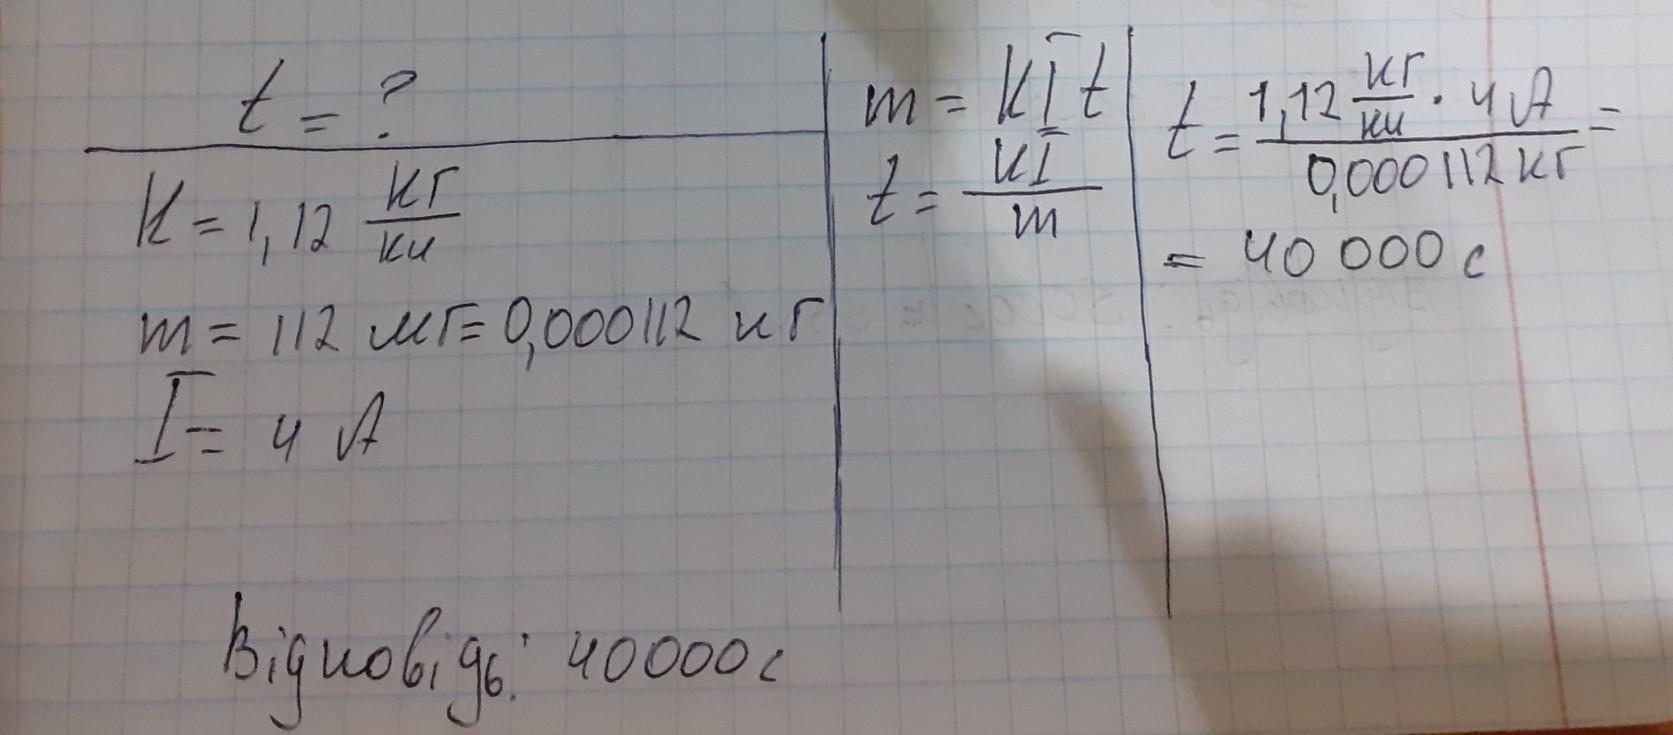 t = ?
K = 1,12 кг/кл
m = 112 мг = 0,000112 кг
I = 4 A
m = kIt
t = kI/m
t = 1,12 кг/кл · 4A / 0,000112 кг =
= 40 000 с
Відповідь: 40000 с